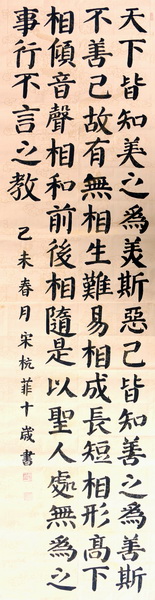 天下皆知美之爲美斯惡己皆知善之爲善斯
不善己故有無相生難易相成長短相形高下
相傾音聲相和前後相隨是以聖人處無爲之
事行不言之教
乙未春月宋杭菲十歲書